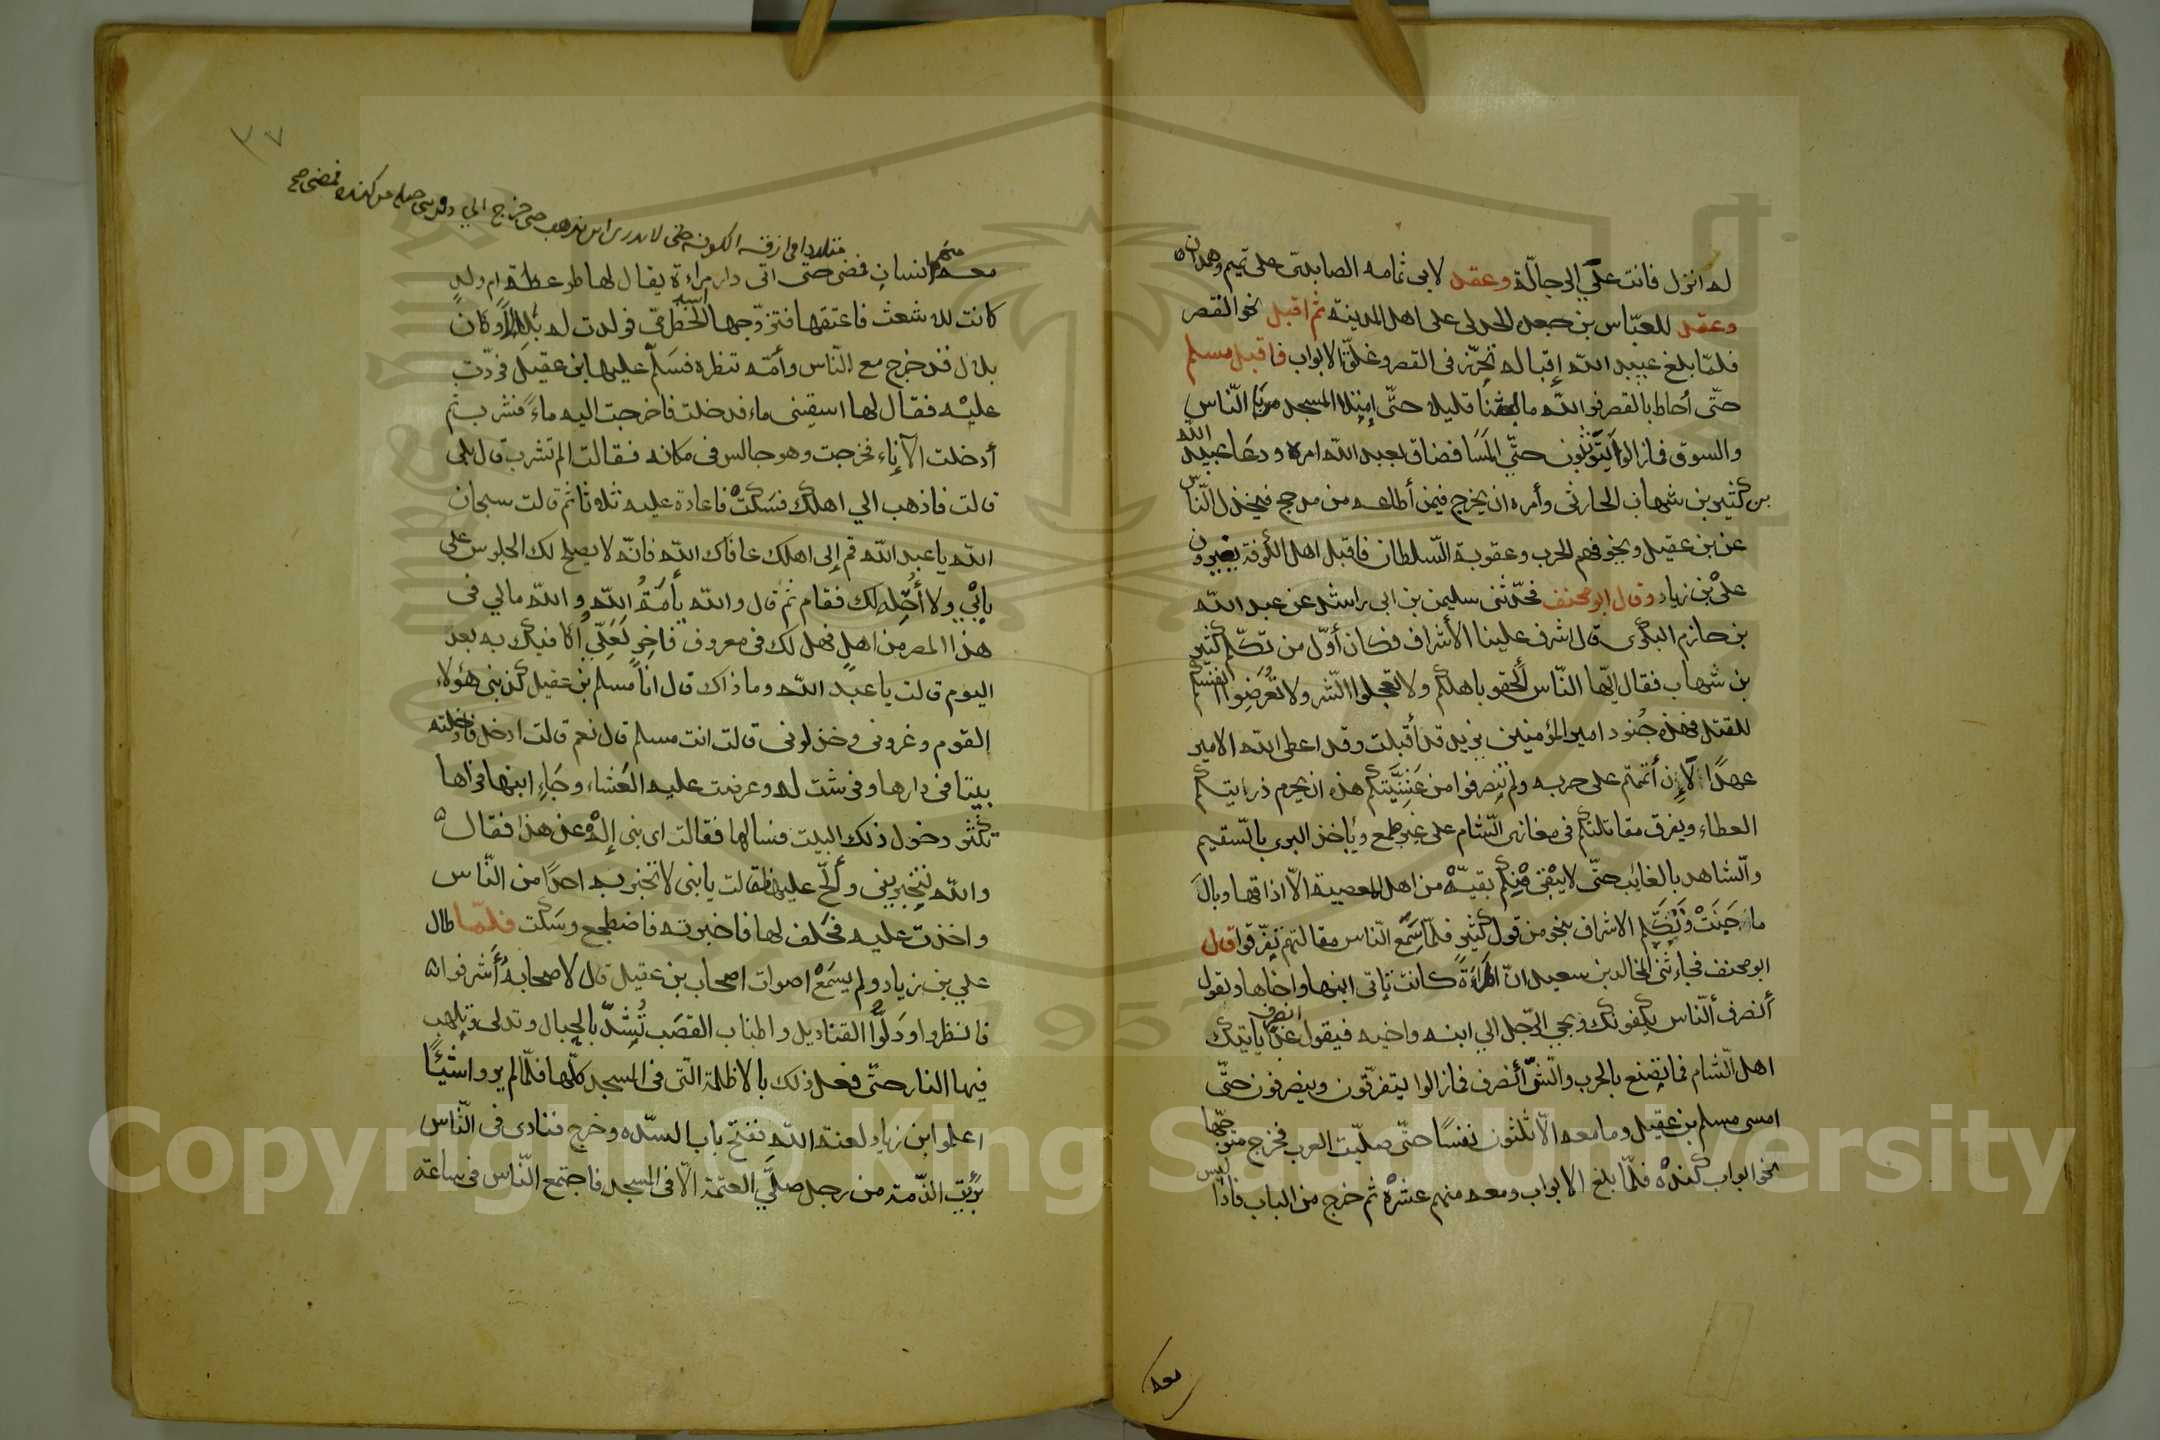 له انزل فانت علي الرجالة وعقد لابي ثمامه الصايدي على تميم وهمدان
وعقد للعبّاس بن جعده الجدلى على اهل المدينة ثم اقبل نحو القصر
فلمّا بلغ عبيد الله إقباله تحرّز فى القصر وغلّق الابواب فاقبل مسلم
حتّى أحاط بالقصر فو الله مالبثنا قليلا حتّى إمتلا المسجد من النّاس
والسوق فمازالوا يتوثبون حتّي المسَا فضاق بعبيد الله امره ودعَا عبيد الله
بن كثير بن شهاب الحارثى وأمره ان يخرج فيمن أطاعه من مدحج فيخذل النّاس
عن بن عقيل ويخوفهم الحرب وعقوبة السّلطان فاقبل اهل الكوفة يفترون
علىْ بن زياد وقال ابو مخنف فحدّثنى سليمن بن ابى راشد عن عبد الله
بن حازم البكرى قال اشرف علينا الأشراف فكان أوّل من تكلّم كثير
بن شهاب فقال ايّها النّاس ألحقو باهلكم ولا تعجلوا الشّر ولا تعُرَضِوا انفسكم
للقتل فهذه جُنود امير المؤمنين يزيد قد أقبلت وقد اعطى الله الامير
عهدًا لإن أتممتم على حربه ولم تنصرفوا من عَشِيَّتكم هذه ان يحرم ذريتكم
العطاء ويفرق مقاتلتكم فى مغازى الشّام على غير طمع وياخذ البرى بالسّقيم
والشّاهد بالغايب حتّى لا يبْقى مْنكم بقيّهْ من اهل المعصية الاّ اذاقها وبالَ
ما جَنَتْ وتكلّم الاشراف بنحو من قول كثيرٍ فلمّا سَمع النّاس مقالتهم تفرّقوا قال
ابو مخنف فجاءثنى الخالد بن سعيد انّ امرأةً كانت تاتى ابنها واخاها وتقول
ألنصرف ألنّاس يكفونك ويجى الرّجل الي ابنه واخيه فيقول غدًا ياتيك انصرف
اهل الشّام فما تصنع بالحرب والشّرّ أنصرف فمازالوا يتفرّقون وينصرفون حتّى
امسى مسلم بن عقيل وما معه الاّ ثلثون نفسًا حتّى صليّت المغرب فخرج متوجّها
نحو ابواب كندهْ فلمّا بلغ الابواب ومعه منهم عشرهْ ثم خرج من الباب فاذا ليس
معه
٣٧
متلددا فى ازقه الكوفه حتى لا يدرى اين يذهب حتى خرج الي دور بنى جبله من كنده فمضى صح
معه منهم انسان فمضى حتّى اتى دار مراءة يقال لها طوعة ام ولدٍ
كانت للاشعث فاعتقها فتزوّجها اسيد الحضرمى فولدت له بلالاً وكان
بلال قد خرج مع النّاس وأمّه تنظره فسَلمّ عليها ابن عقيل فردّت
عليْه فقال لها اسقينى ماء فدخلت فاخرجت اليه ماءً فشرب ثم
أدخلت الآناء فخرجت وهو جالس فى مكانه فقالت الم تشرب قال بلى
قالت فاذهب الي اهلك فسَكتْ فاعادة عليه ثلاثا ثم قالت سبحان
الله يا عبد الله قم إلى اهلك عافاك الله فانّه لا يصلح لك الجلوس على
بابْي ولا أُحِّله لك فقام ثم قال والله يأمَةُ اللّه والله مالي فى
هذا المصر من اهلٍ فهل لك فى معروف فاخرٍ لَعَلّي اكافيك به بعد
اليوم قالت يا عبد الله وما ذاك قال اناَ مسلم بن عقيل كذبنى هؤلاء
القوم وغرونى وخذلونى قالت انت مسلم قال نعم قالت ادخل فادخلته
بيتا فى دارها وفرشت له وعرضت عليه العَشاء وجَاء ابنها فراها
تكثر دخول ذلك البيت فسالها فقالت اى بنى إلهْ عن هذا فقال
والله لتخبرينى وألحّ عليها فقالت يابنى لا تخبر به احدًا من النّاس
واخذت عليه فحَلف لها فاخبرته فاضطجع وسَكت فلمّا طال
علي بن زياد ولم يسمَعْ اصوات اصحاب بن عقيل قال لاصحابهُ أشرفوا
فانظروا ودَلّوا القناديل واطناب القصَب تُشدّ بالحبال وتدلى وتلهب
فيها النار حتّى فعل ذلك بالاظلة التى فى المسجد كلّها فلمّا لم يروا شيئًا
اعلموا ابن زياد لعنة الله ففتح باب السّده وخرج فنادى فى النّاس
بَرئتِ الذّمة من رجل صلّي العتمة الاّ فى المسجد فاجتمع النّاس فى ساعة
Copyright © King Saud University
1957